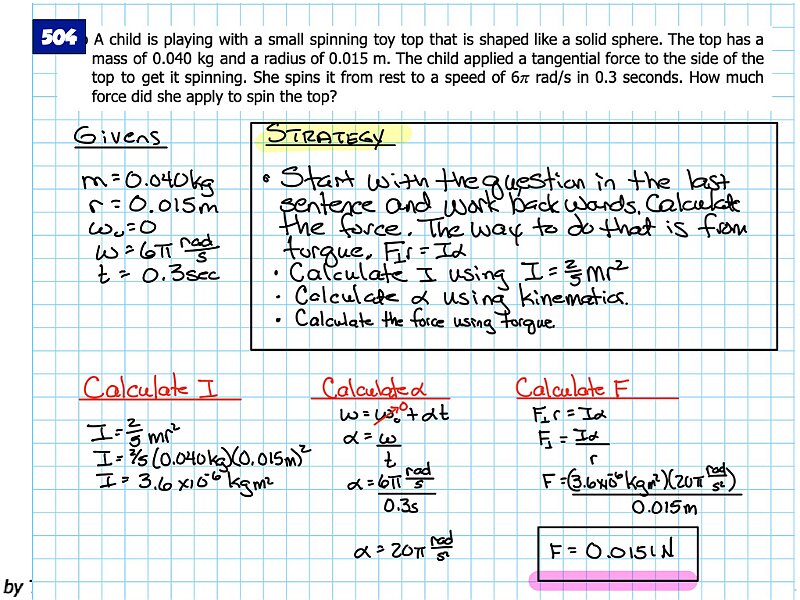 504
A child is playing with a small spinning toy top that is shaped like a solid sphere. The top has a
mass of 0.040 kg and a radius of 0.015 m. The child applied a tangential force to the side of the
top to get it spinning. She spins it from rest to a speed of 6π rad/s in 0.3 seconds. How much
force did she apply to spin the top?
Givens
m = 0.040 kg
r = 0.015 m
ω₀ = 0
ω = 6π rad/s
t = 0.3 sec
STRATEGY
• Start with the question in the last
sentence and work backwards. Calculate
the force. The way to do that is from
torque. F⊥r = Iα
• Calculate I using I = 2/5 mr²
• Calculate α using kinematics.
• Calculate the force using torque.
Calculate I
I = 2/5 mr²
I = 2/5 (0.040kg)(0.015m)²
I = 3.6 x10⁻⁶ kg m²
Calculate α
ω = ω₀ + αt
0
α = ω/t
α = 6π rad/s / 0.3s
α = 20π rad/s²
Calculate F
F⊥r = Iα
F⊥ = Iα/r
F = (3.6x10⁻⁶ kg m²)(20π rad/s²) / 0.015m
F = 0.0151 N
by